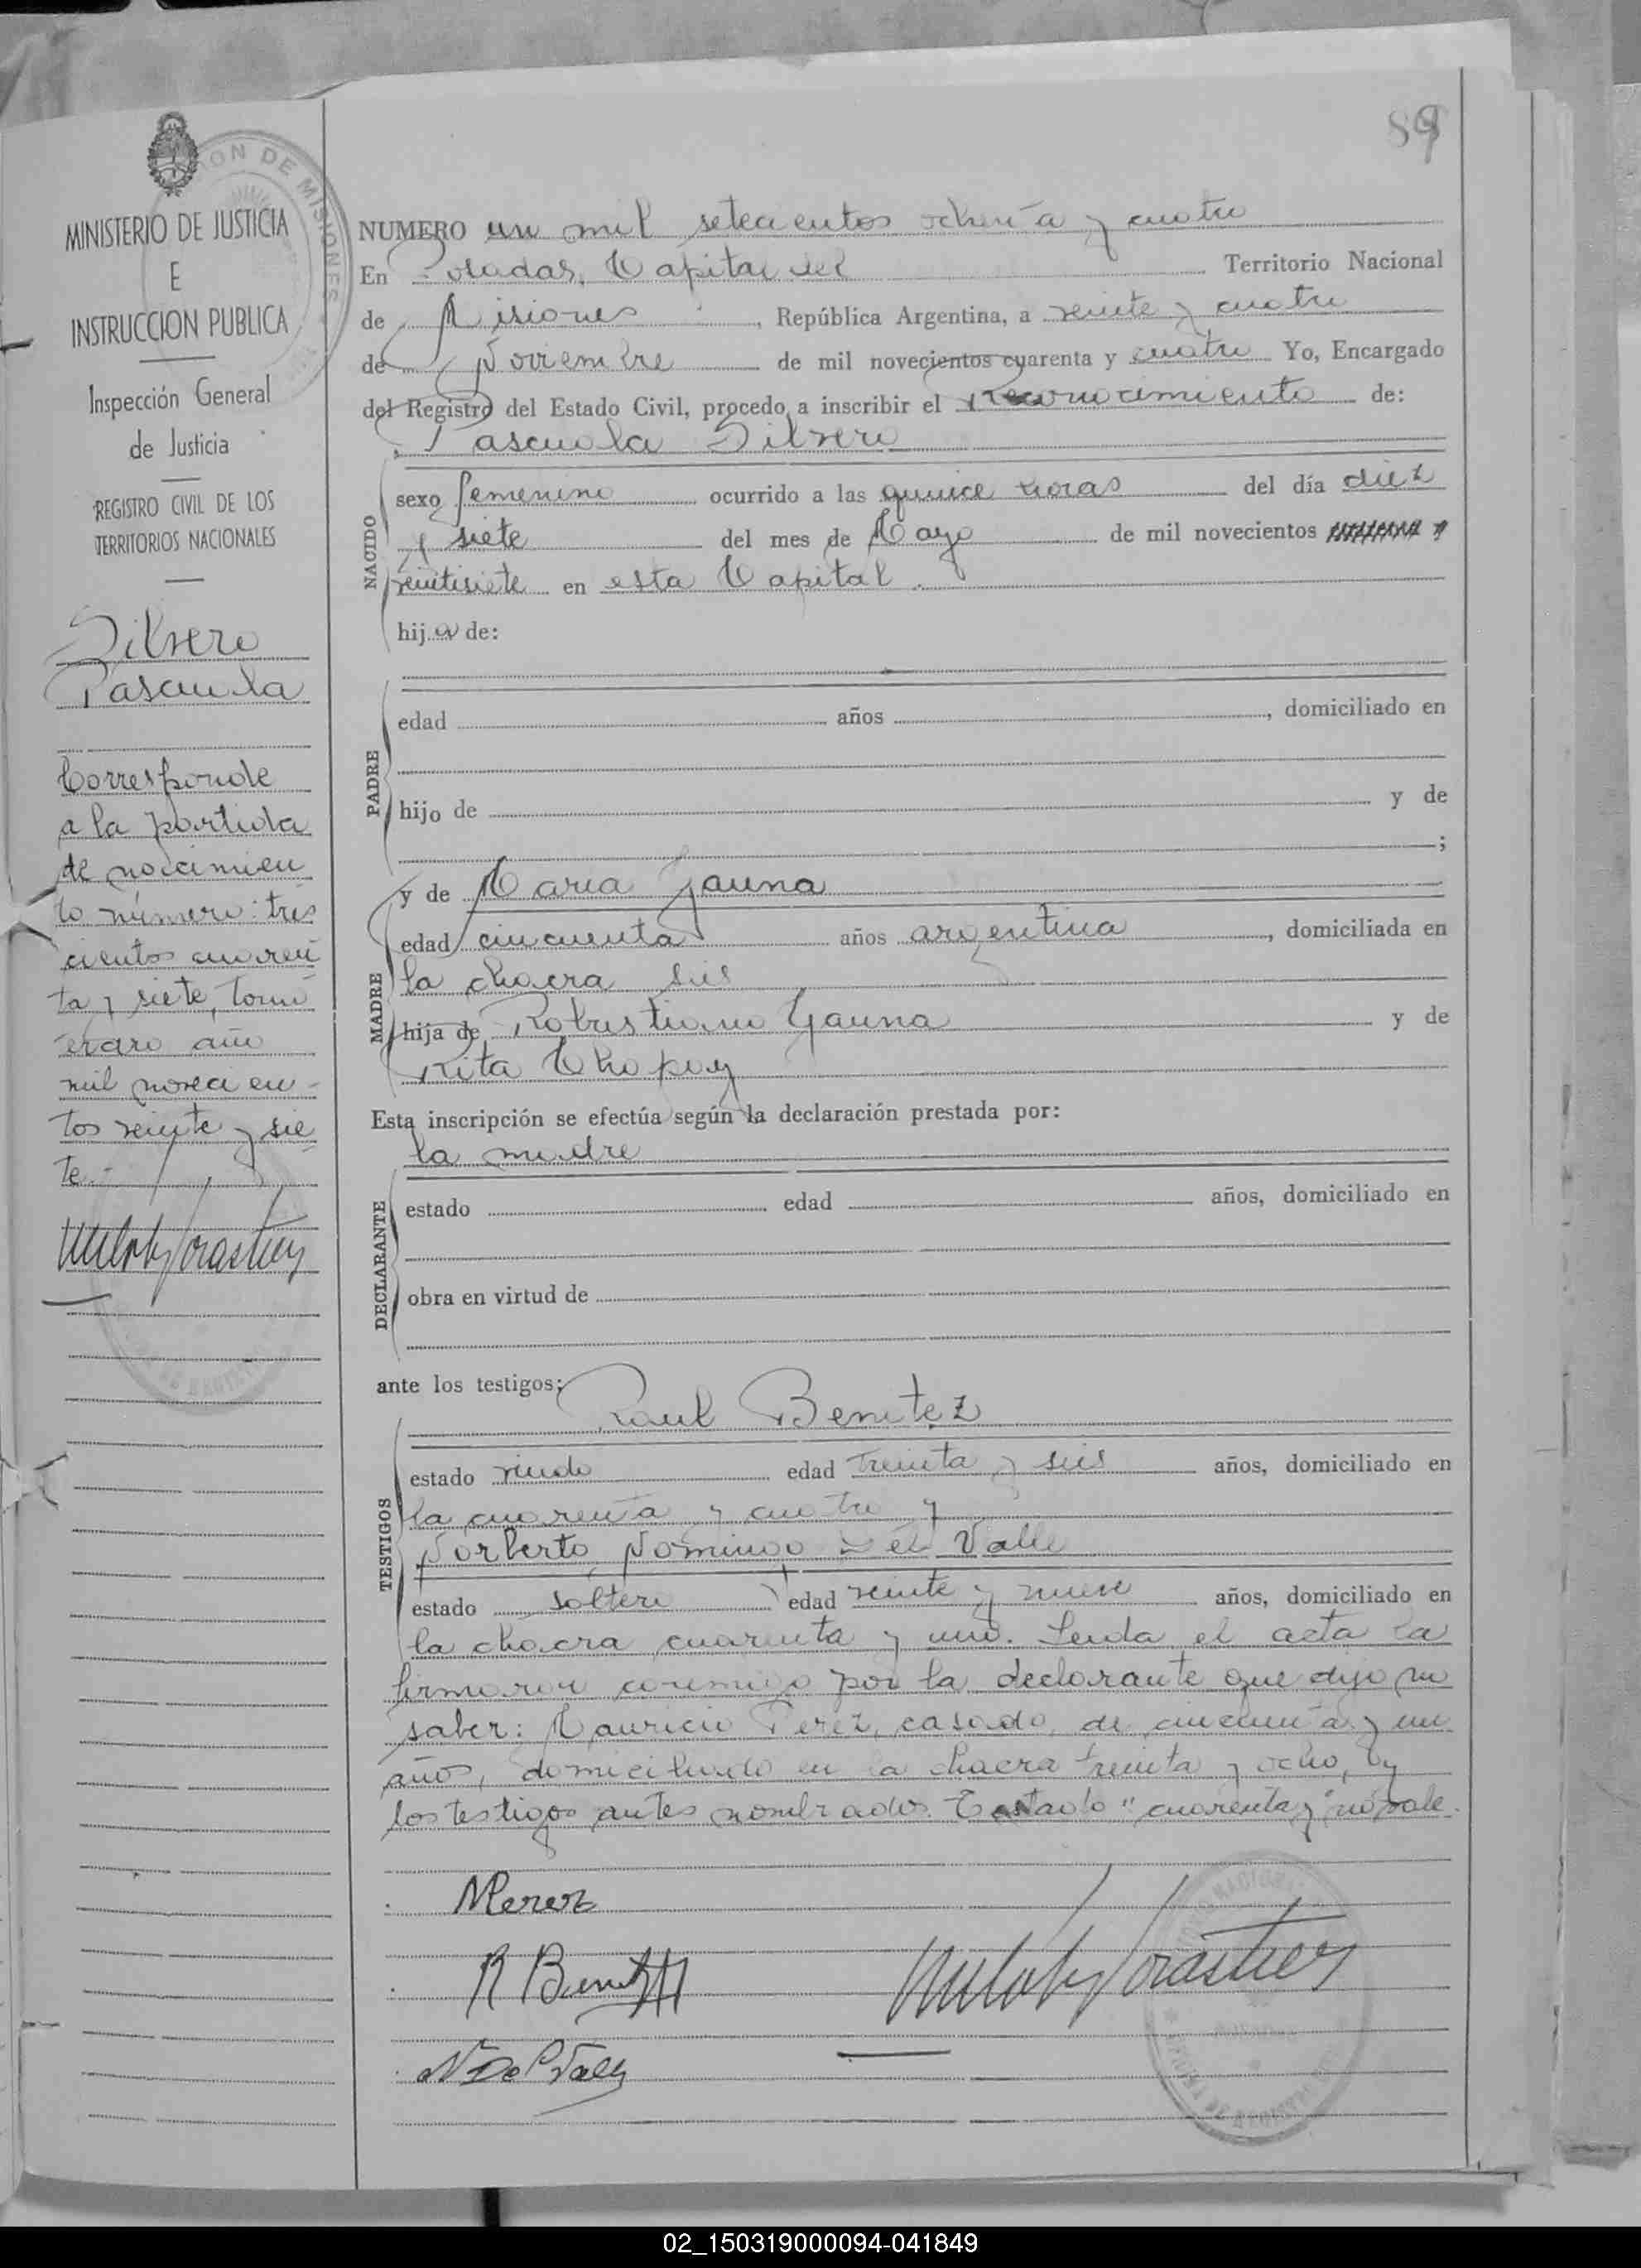 89
MINISTERIO DE JUSTICIA
E
INSTRUCCION PUBLICA
Inspección General
de Justicia
REGISTRO CIVIL DE LOS
TERRITORIOS NACIONALES
Silvero
Pascuala
Corresponde
a la partida
de nacimien
to número: tres
cientos cuaren
ta y siete, tomo
año
mil novecien-
tos veinte y sie
te.-
NUMERO un mil setecientos ochenta y cuatro
En Posadas, Capital del Territorio Nacional
de Misiones, República Argentina, a veinte y cuatro
de Noviembre de mil novecientos cuarenta y cuatro Yo, Encargado
del Registro del Estado Civil, procedo a inscribir el Reconocimiento de:
Pascuala Silvero
NACIDO
sexo femenino ocurrido a las quince horas del día diez
y siete del mes de Mayo de mil novecientos
veintisiete en esta Capital.
hija de:
PADRE
edad años , domiciliado en
hijo de y de
;
MADRE
y de Maria Gauna
edad cincuenta años argentina, domiciliada en
la chacra seis
hija de Robustiano Gauna y de
Rita Chopuy
Esta inscripción se efectúa según la declaración prestada por:
la madre
DECLARANTE
estado edad años, domiciliado en
obra en virtud de
ante los testigos:
Raul Benitez
TESTIGOS
estado viudo edad treinta y seis años, domiciliado en
la cuarenta y cuatro y
Norberto Domingo Del Valle
estado soltero edad veinte y nueve años, domiciliado en
la chacra cuarenta y uno. Leida el acta la
firmaron conmigo por la declarante que dijo no
saber: Mauricio Perez, casado, de cincuenta y un
años, domiciliado en la chacra treinta y ocho, y
los testigos antes nombrados. Testado "cuarenta y" no vale.
MPerez
R Benitez
N Del Valle
02_150319000094-041849